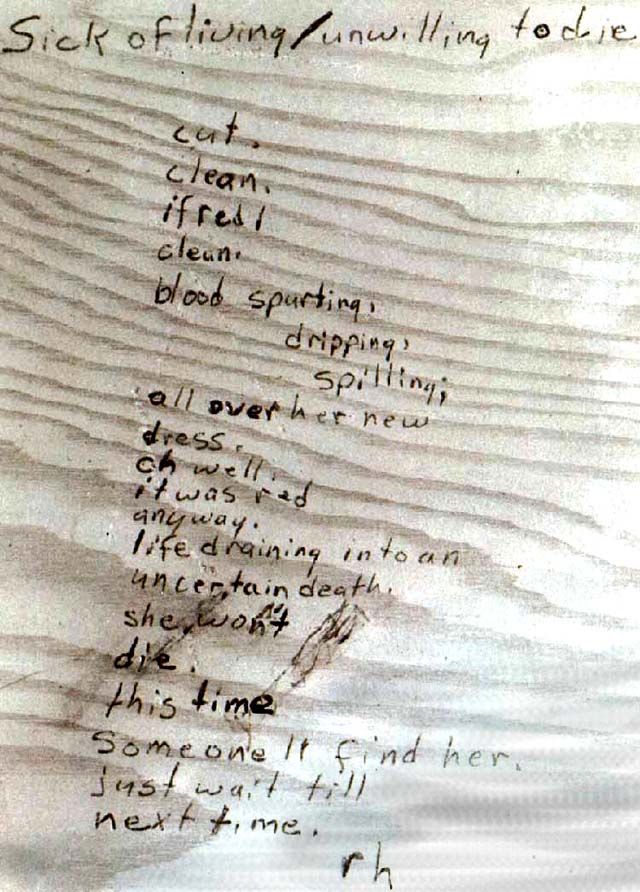 Sick of living/unwilling to die
cut.
clean.
if red/
clean.
blood spurting,
dripping,
spilling;
all over her new
dress.
oh well.
it was red
anyway.
life draining into an
uncertain death.
she won't
die.
this time
Someone ll find her.
just wait till
next time.
rh